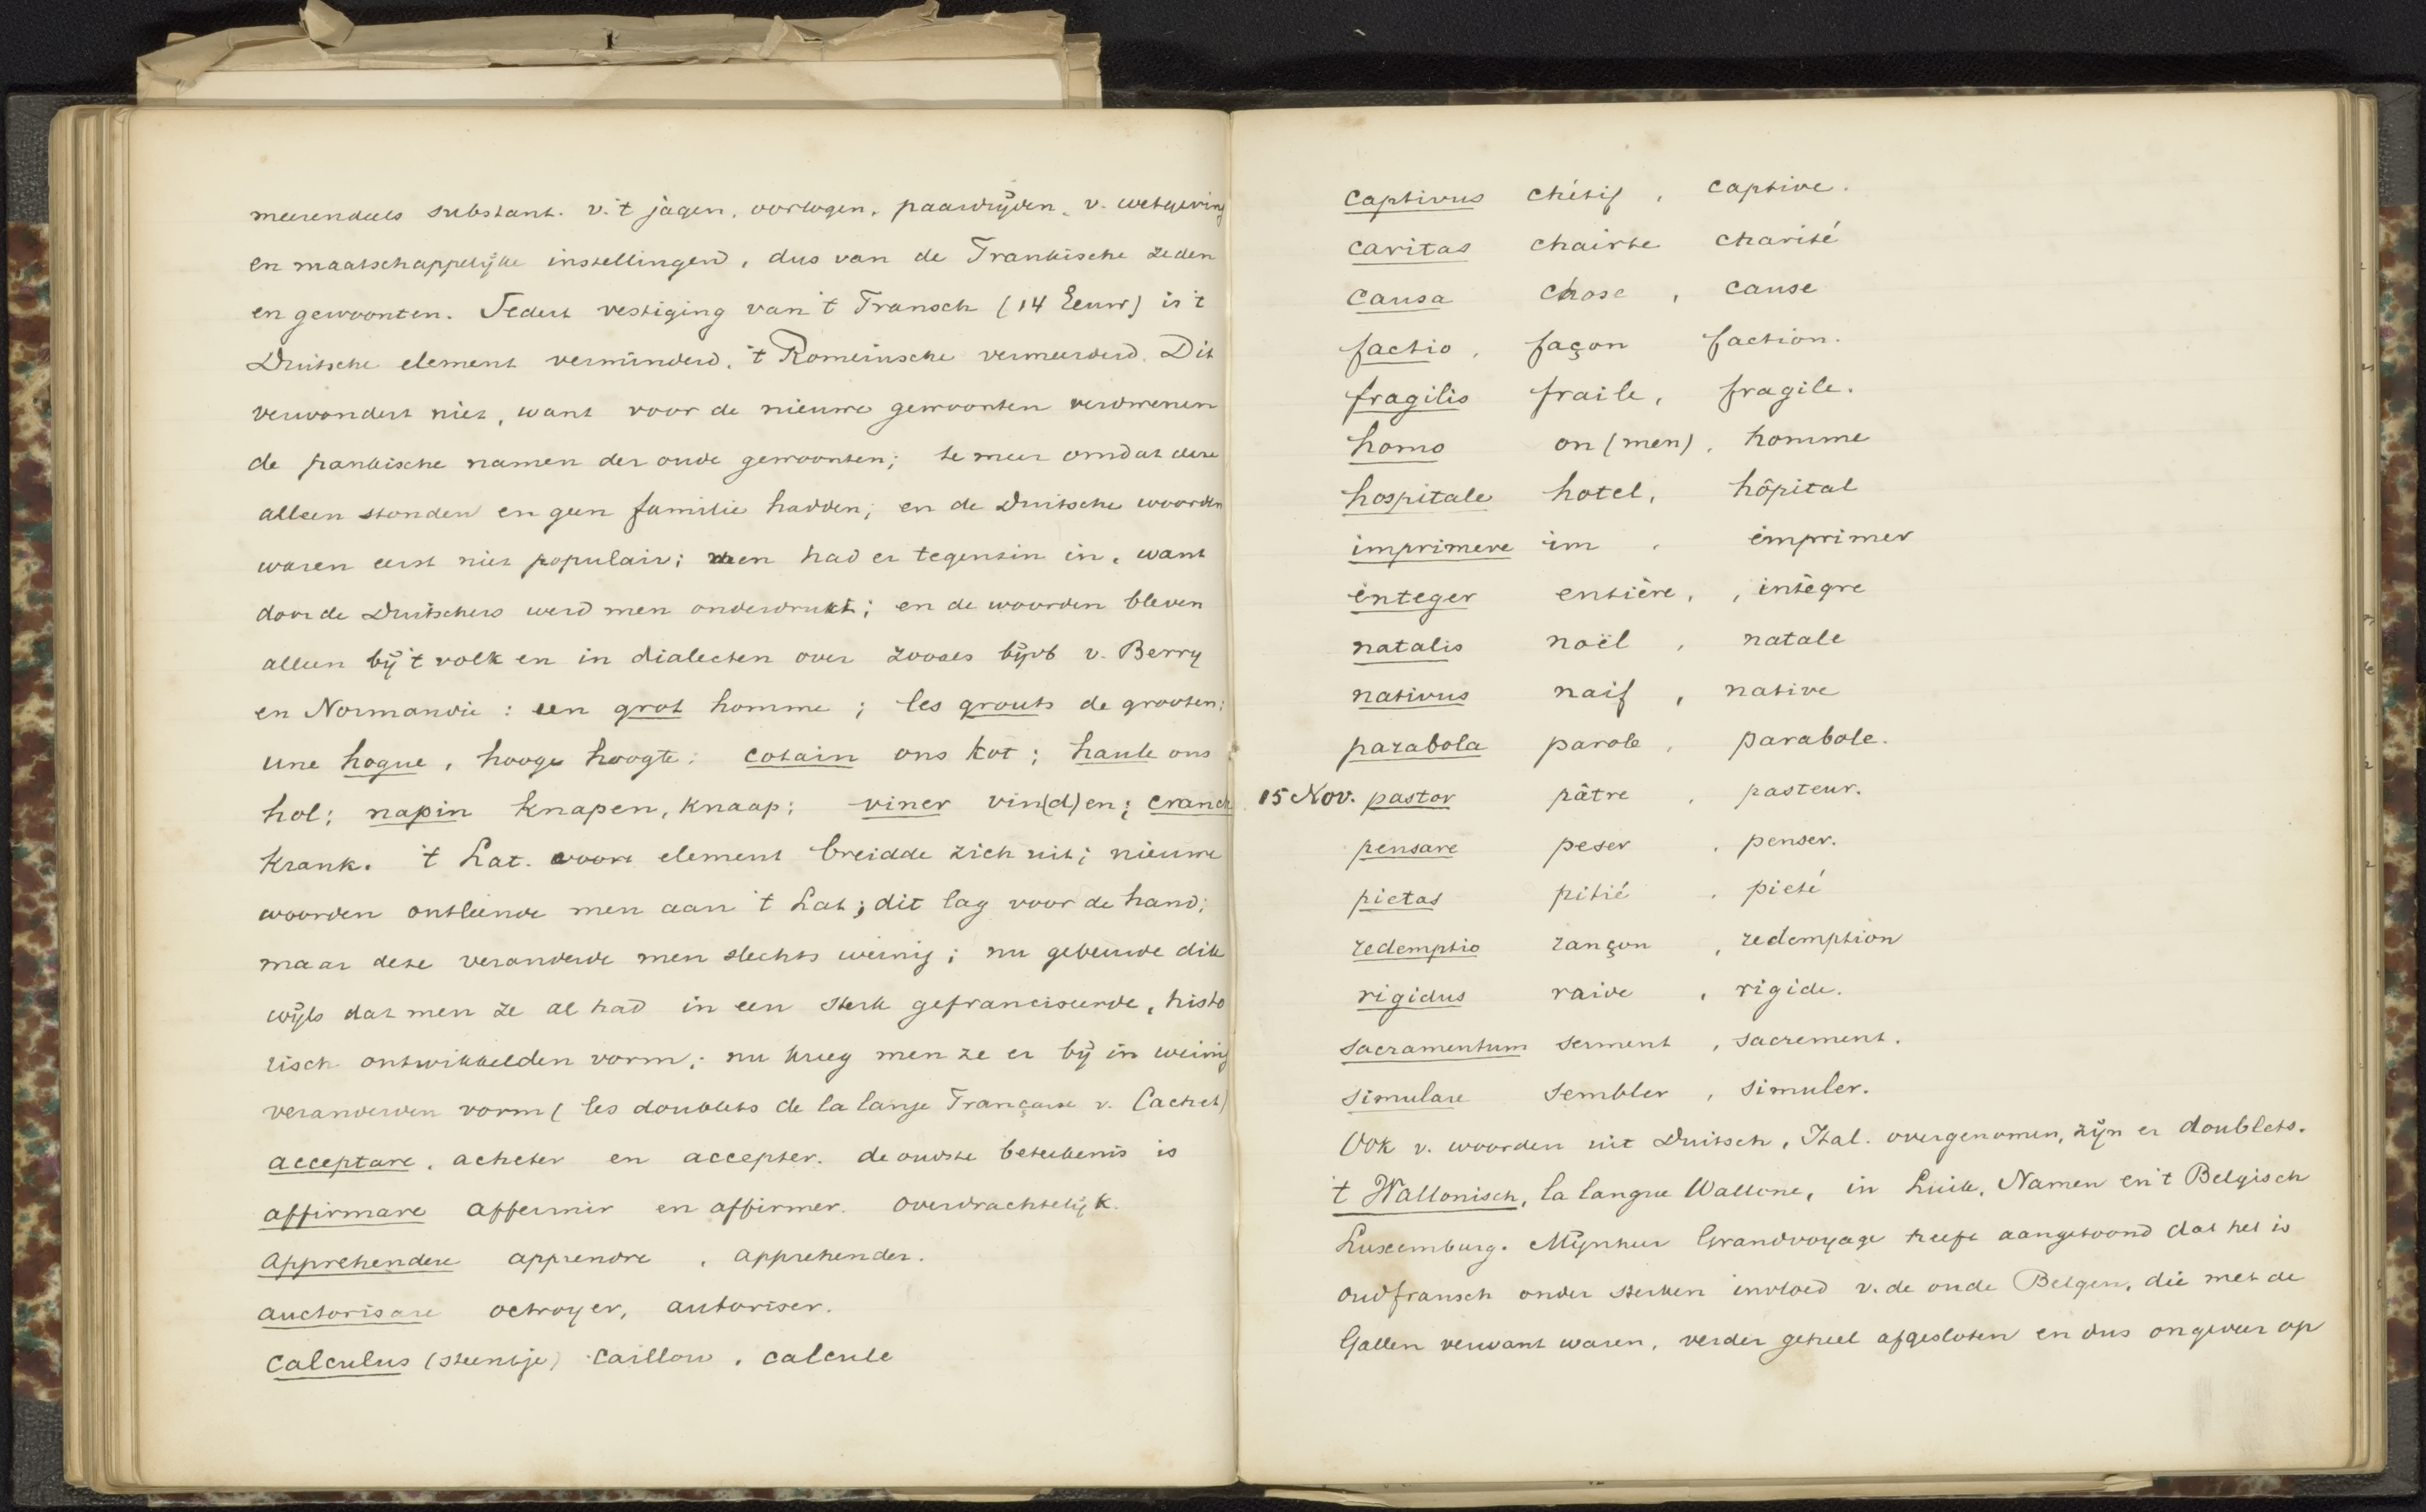 meerendeels substant. v. 't jagen, oorlogen, paardrijden, v. wetgeving
en maatschappelijke instellingen, dus van de Frankische zeden
en gewoonten. Sedert vestiging van 't Fransch (14 Eeuw) is 't
Duitsche element verminderd, 't Romeinsche vermeerderd. Dit
verwondert niet, want voor de nieuwe gewoonten verdwenen
de frankische namen der oude gewoonten; te meer omdat deze
alleen stonden en geen familie hadden; en de Duitsche woorden
waren eerst niet populair; men had er tegenzin in, want
door de Duitschers werd men onderdrukt; en de woorden bleven
alleen bij 't volk en in dialecten over zooals bijvb v. Berry
en Normandie : een grot homme ; les grouts de grooten;
une hogue, hooge hoogte; cotain ons kot ; haule ons
hol; napin knapen, knaap; viner vin(d)en; cranch
krank. 't Lat. element breidde zich uit; nieuwe
woorden ontleende men aan 't Lat; dit lag voor de hand;
maar deze veranderde men slechts weinig; nu gebeurde dik
wijls dat men ze al had in een sterk gefranciseerde, histo
risch ontwikkelden vorm; nu kreeg men ze er bij in weinig
veranderden vorm (les doublets de la lange Française v. Cachet)
acceptare, acheter en accepter. de oudste beteekenis is
affirmare affermir en affirmer. overdrachtelijk.
apprehendere apprendre , apprehender.
auctorisare octroyer, autoriser.
calculus (steentje) caillou , calcule
captivus chétif , captive.
caritas chairte charité
causa chose , cause
factio , façon faction.
fragilis fraile, fragile.
homo on (men) , homme
hospitale hotel, hôpital
imprimere im , imprimer
integer entière, , intègre
natalis noël , natale
nativus naif , native
parabola parole , parabole.
15 Nov. pastor pâtre , pasteur.
pensare peser , penser.
pietas pitié , pieté
redemptio rançon , redemption
rigidus raide , rigide.
sacramentum serment , sacrement.
simulare sembler , simuler.
Ook v. woorden uit Duitsch, Ital. overgenomen, zijn er doublets.
't Wallonisch, la langue Wallone, in Luik, Namen en 't Belgisch
Luxemburg. Mijnheer Grandvoyage heeft aangetoond dat het is
oudfransch onder sterken invloed v. de oude Belgen, die met de
Gallen verwant waren, verder geheel afgesloten en dus ongeveer op